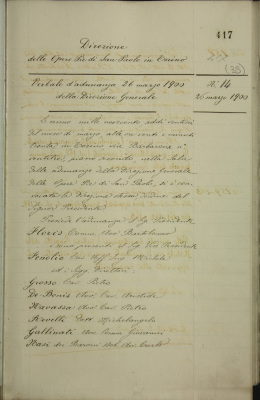 417
Direzione
delle Opere Pie di San Paolo in Torino
(33)
Verbale d'adunanza 26 marzo 1900
della Direzione Generale
N. 14
26 marzo 1900
L'anno mille novecento addì ventisei
del mese di marzo, alle ore venti e minuti
trenta, in Torino, via Barbaroux n°
ventinove, piano secondo, nella Sala
delle adunanze della Direzione Generale
delle Opere Pie di San Paolo, si è con-
vocata la Direzione stessa d'ordine del
Signor Presidente.
Presiede l'adunanza il Sig. Presidente
Flores Comm. Avv. Bartolomeo
e sono presenti il Sig. Vice Presidente
Fenolio Cav. Uff. Ing.
e i Sigg. Direttori
Grosso Cav. Pietro
De Bonis Avv. Cav. Aristide
Ravassa Avv. Cav. Pietro
Revelli Dott. Michelangelo
Gallinati Avv. Comm. Giovanni
Nasi dei Baroni Avv. Cav. Carlo